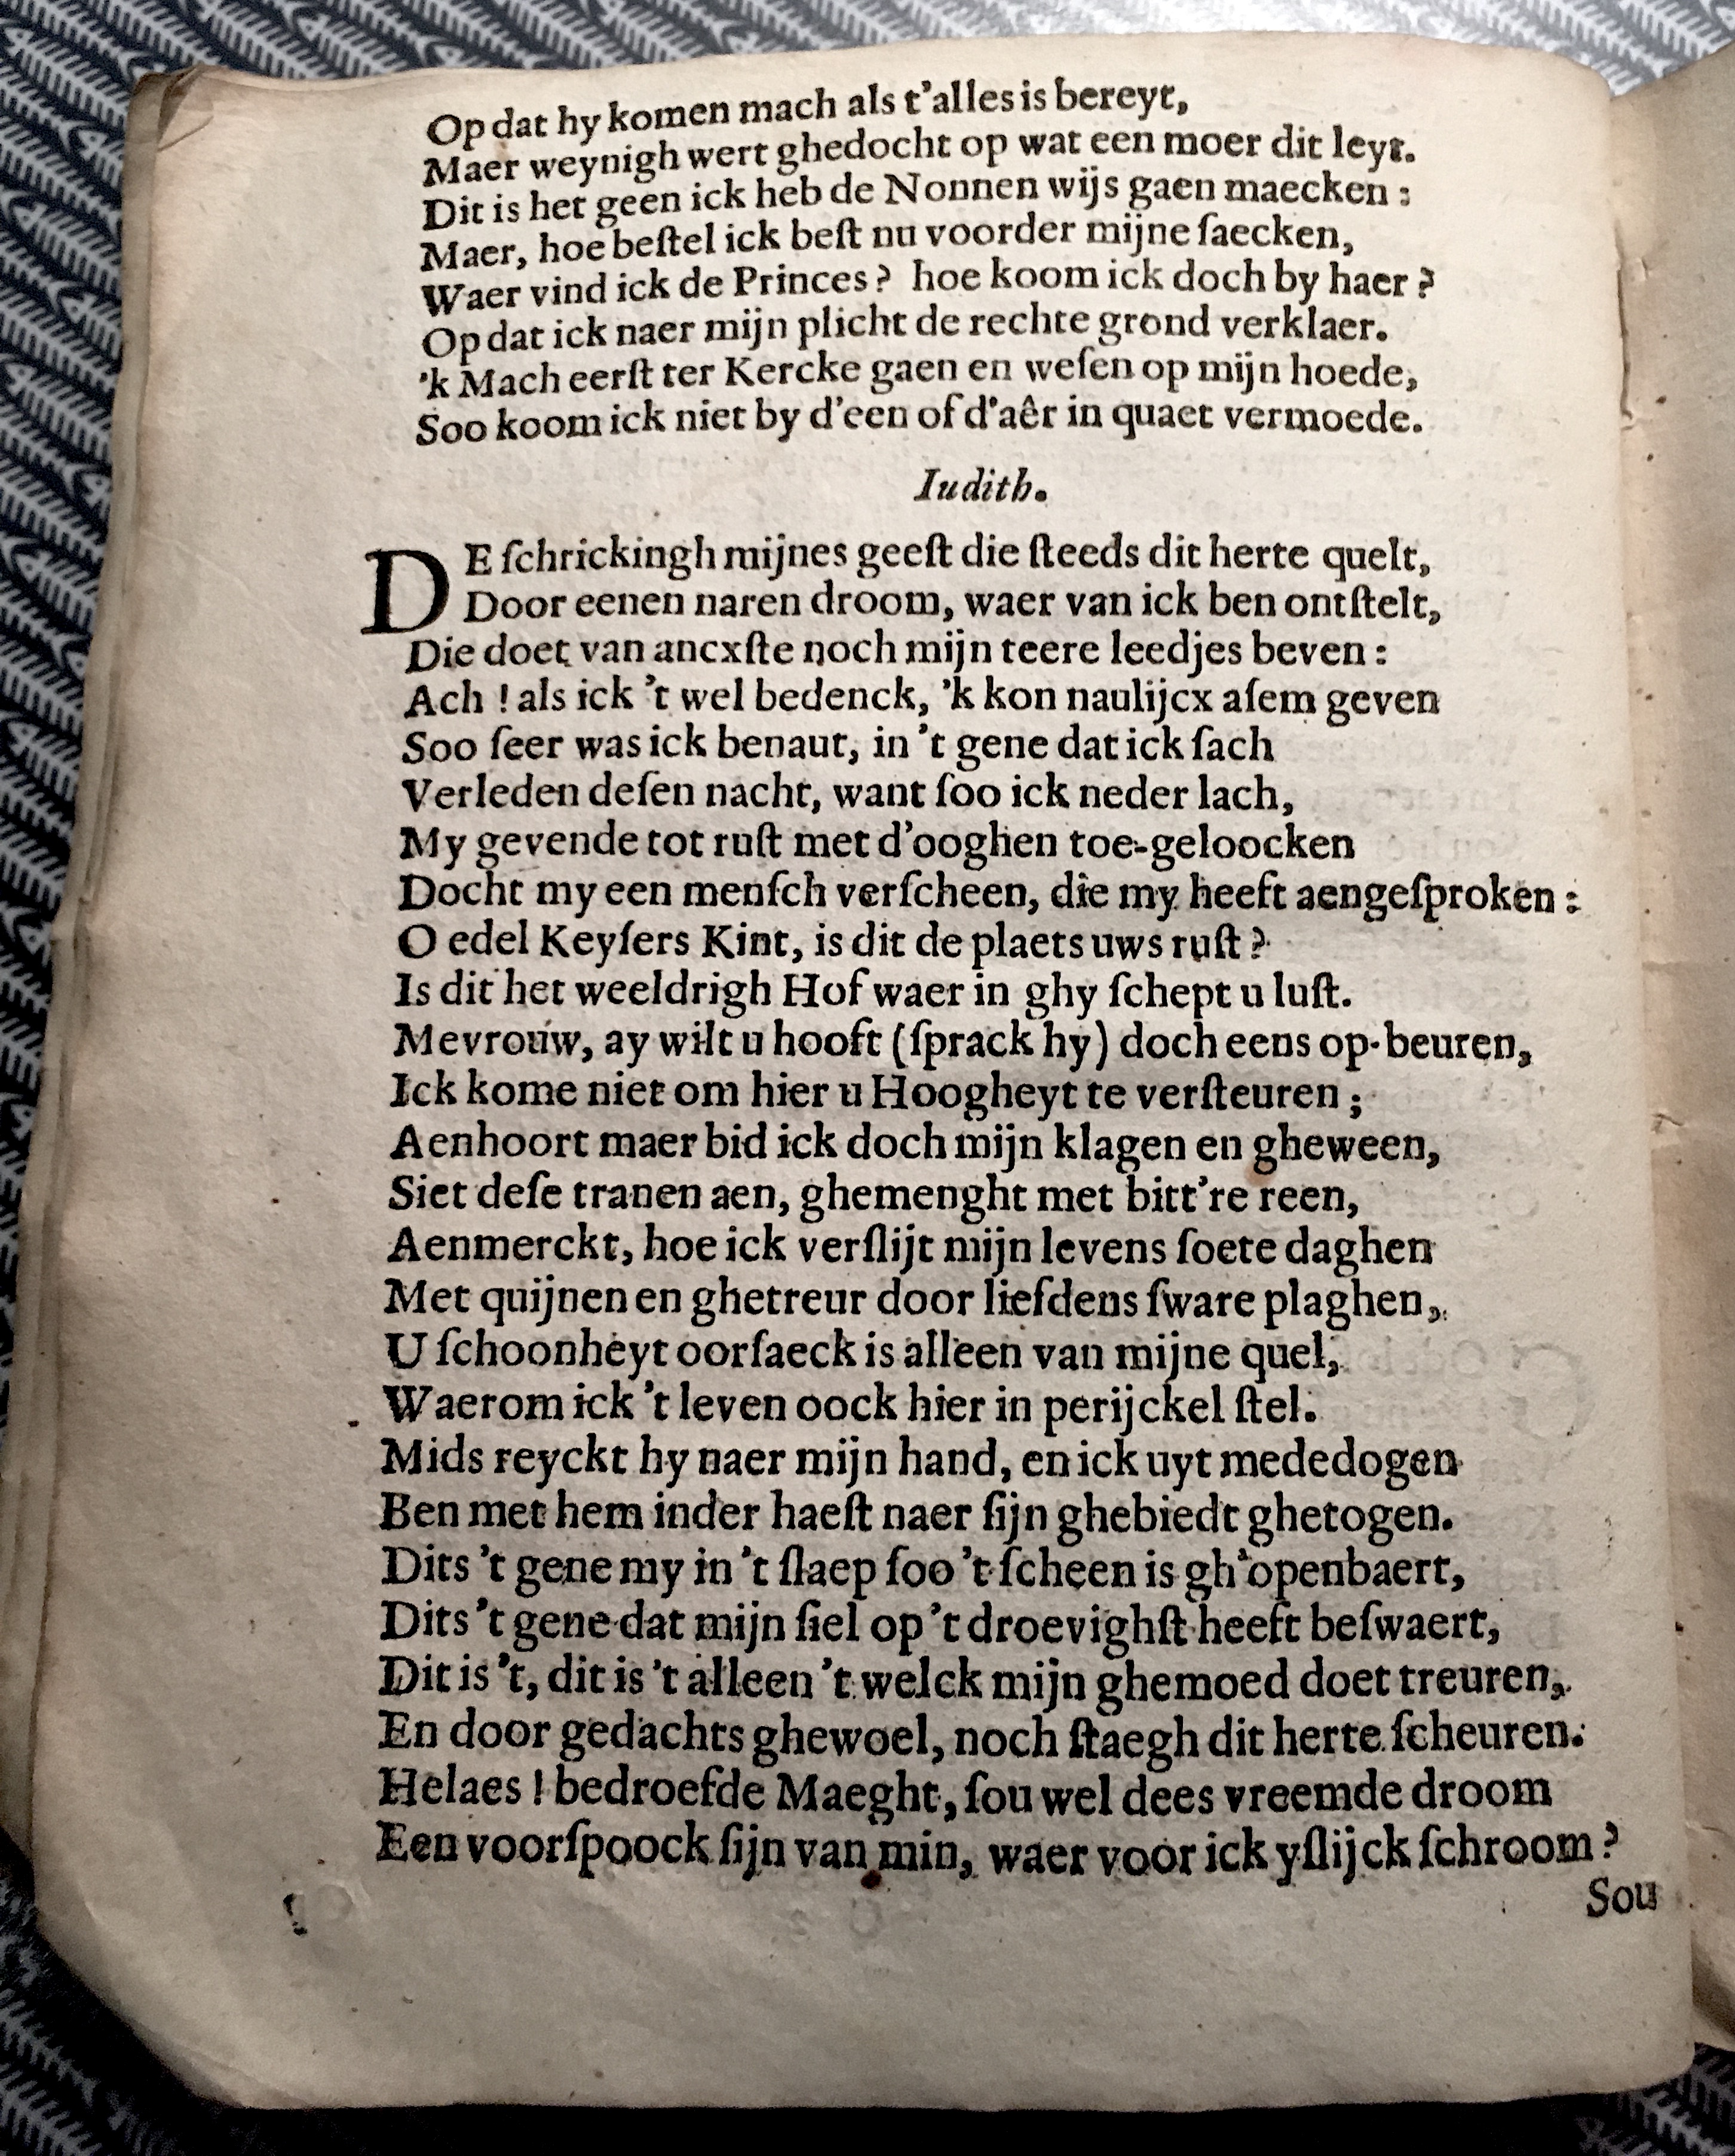 Op dat hy komen mach als t'alles is bereyt,
Maer weynigh wert ghedocht op wat een moer dit leyt.
Dit is het geen ick heb de Nonnen wijs gaen maecken :
Maer, hoe beſtel ick beſt nu voorder mijne ſaecken,
Waer vind ick de Princes ? hoe koom ick doch by haer ?
Op dat ick naer mijn plicht de rechte grond verklaer.
'k Mach eerſt ter Kercke gaen en weſen op mijn hoede,
Soo koom ick niet by d'een of d'aêr in quaet vermoede.
Iudith.
DE ſchrickingh mijnes geeſt die ſteeds dit herte quelt,
Door eenen naren droom, waer van ick ben ontſtelt,
Die doet van ancxſte noch mijn teere leedjes beven :
Ach ! als ick 't wel bedenck, 'k kon naulijcx aſem geven
Soo ſeer was ick benaut, in 't gene dat ick ſach
Verleden deſen nacht, want ſoo ick neder lach,
My gevende tot ruſt met d'ooghen toe-geloocken
Docht my een menſch verſcheen, die my heeft aengeſproken :
O edel Keyſers Kint, is dit de plaets uws ruſt ?
Is dit het weeldrigh Hof waer in ghy ſchept u luſt.
Mevrouw, ay wilt u hooft (ſprack hy) doch eens op-beuren,
Ick kome niet om hier u Hoogheyt te verſteuren ;
Aenhoort maer bid ick doch mijn klagen en gheween,
Siet deſe tranen aen, ghemenght met bitt're reen,
Aenmerckt, hoe ick verſlijt mijn levens ſoete daghen
Met quijnen en ghetreur door liefdens ſware plaghen,
U ſchoonheyt oorſaeck is alleen van mijne quel,
Waerom ick 't leven oock hier in perijckel ſtel.
Mids reyckt hy naer mijn hand, en ick uyt mededogen
Ben met hem inder haeſt naer ſijn ghebiedt ghetogen.
Dits 't gene my in 't ſlaep ſoo 't ſcheen is gh'openbaert,
Dits 't gene dat mijn ſiel op 't droevighſt heeft beſwaert,
Dit is 't, dit is 't alleen 't welck mijn ghemoed doet treuren,
En door gedachts ghewoel, noch ſtaegh dit herte ſcheuren.
Helaes ! bedroefde Maeght, ſou wel dees vreemde droom
Een voorſpoock ſijn van min, waer voor ick yſlijck ſchroom ?
Sou